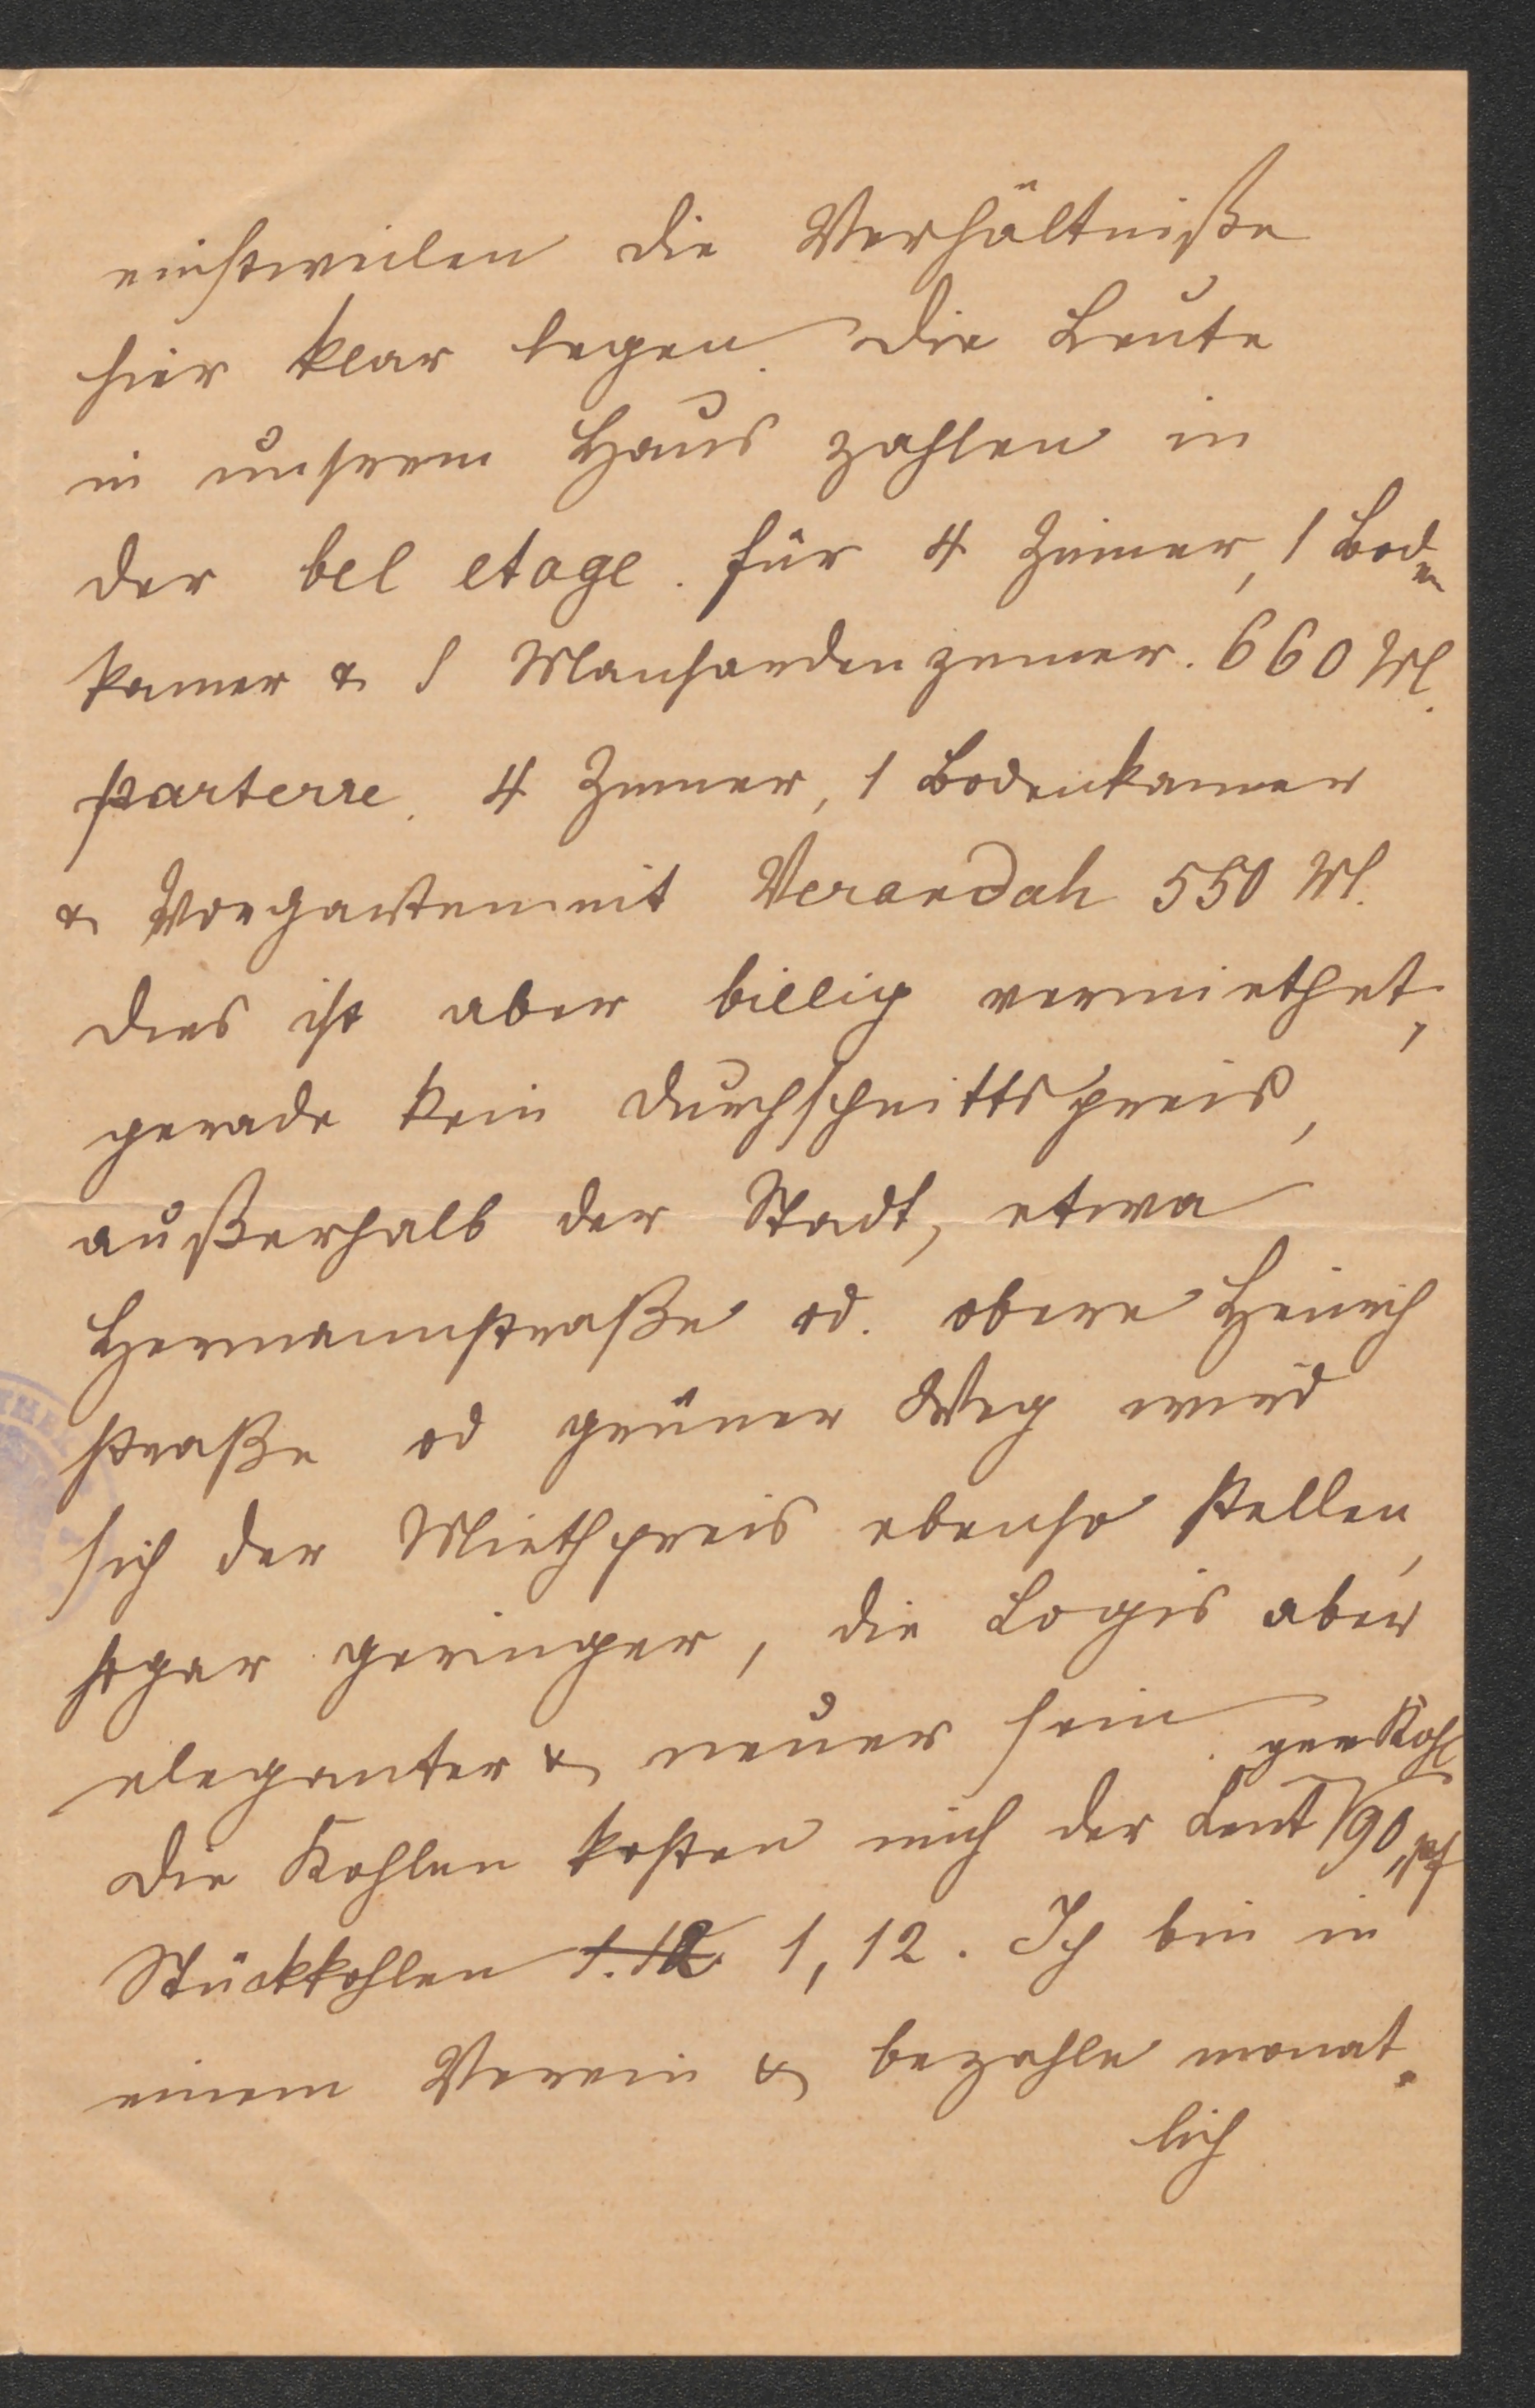 einstweilen die Verhältniße
hier klar legen. Die Leute
in unsrem Haus zahlen in
der bel etage. für 4 Zimer, 1 Boden
kamer & 1 Mansardenzimer. 660 M.
parterre. 4 Zimer, 1 Bodenkamer
& Vorgarten mit Verandah 550 M.
dies ist aber billig vermiethet,
gerade kein Durchschnittspreis,
außerhalb der Stadt, etwa
Hermannstraße od. obere Heinrich
straße od grüner Weg wird
sich der Miethpreis ebenso stellen,
sogar geringer, die Logis aber
eleganter & neuer sein.
Die Kohlen kosten mich der Cent 90 Pf
Stückkohlen 1.12 1,12. Ich bin in
einem Verein & bezahle monat-
lich